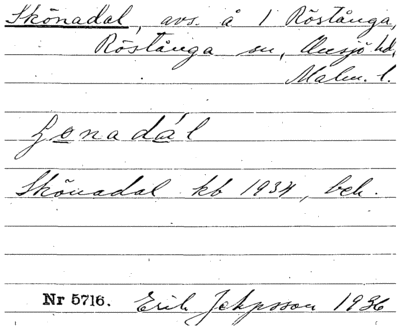 Skönadal, avs. å 1 Röstånga,
Röstånga sn, Onsjö hd,
Malm. l.
Skönadal kb 1934, beb.
Nr 5716. Erik 1936